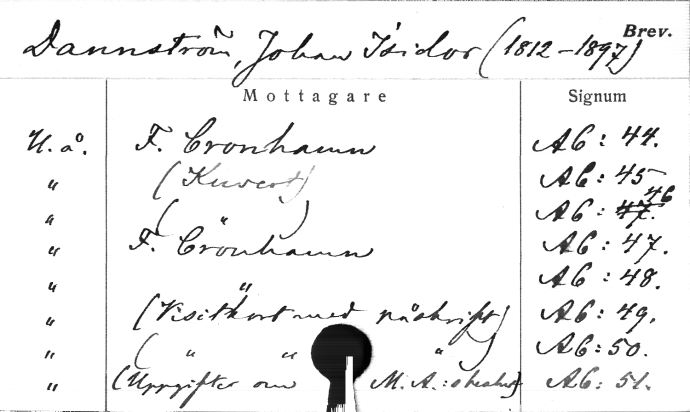 Brev.
Dannström, Johan Isidor (1812–1897)
Mottagare Signum
U. å. F. Cronhamn AC: 44.
" (Kuvert) AC: 45
" ( " ) AC: 46
" F. Cronhamn AC: 47.
" " AC: 48.
" (Visitkort med påskrift) AC: 49.
" ( " " " ) AC: 50.
" (Uppgifter om M. A.: AC: 51.